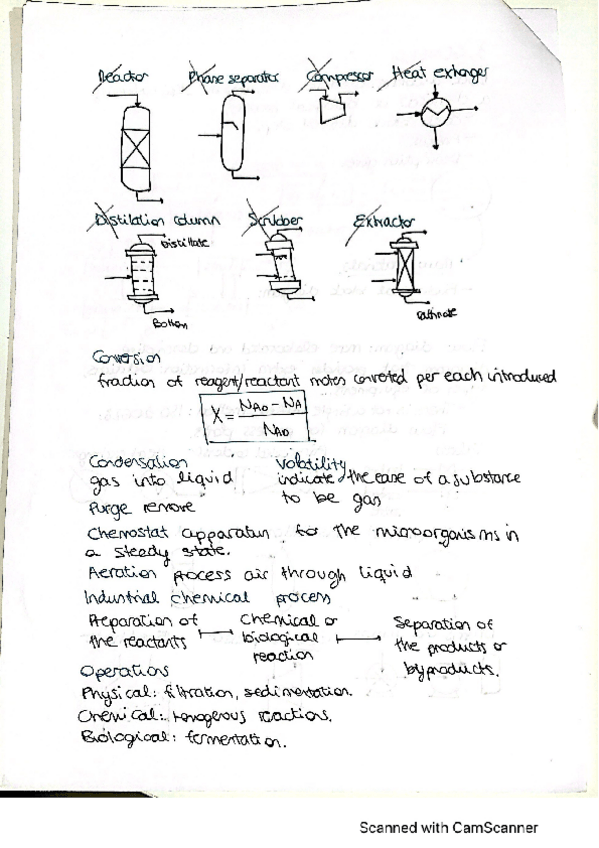 Reactor Phase separator Compressor Heat exhanger
Distilation column Scrubber Extractor
Distillate
Bottom Rafinate
Conversion
fraction of reagent/reactant moles converted per each introduced
X = (N_A0 - N_A) / N_A0
Condensation Volatility
gas into liquid indicate the ease of a substance
to be gas
Purge remove
Chemostat apparatun for the microorganisms in
a steady state.
Aeration process air through liquid
Industrial chemical process
Preparation of Chemical or Separation of
the reactants biological the products or
reaction byproducts.
Operations
Physical: filtration, sedimentation.
Chemical: homogenous reactions.
Biological: fermentation.
Scanned with CamScanner